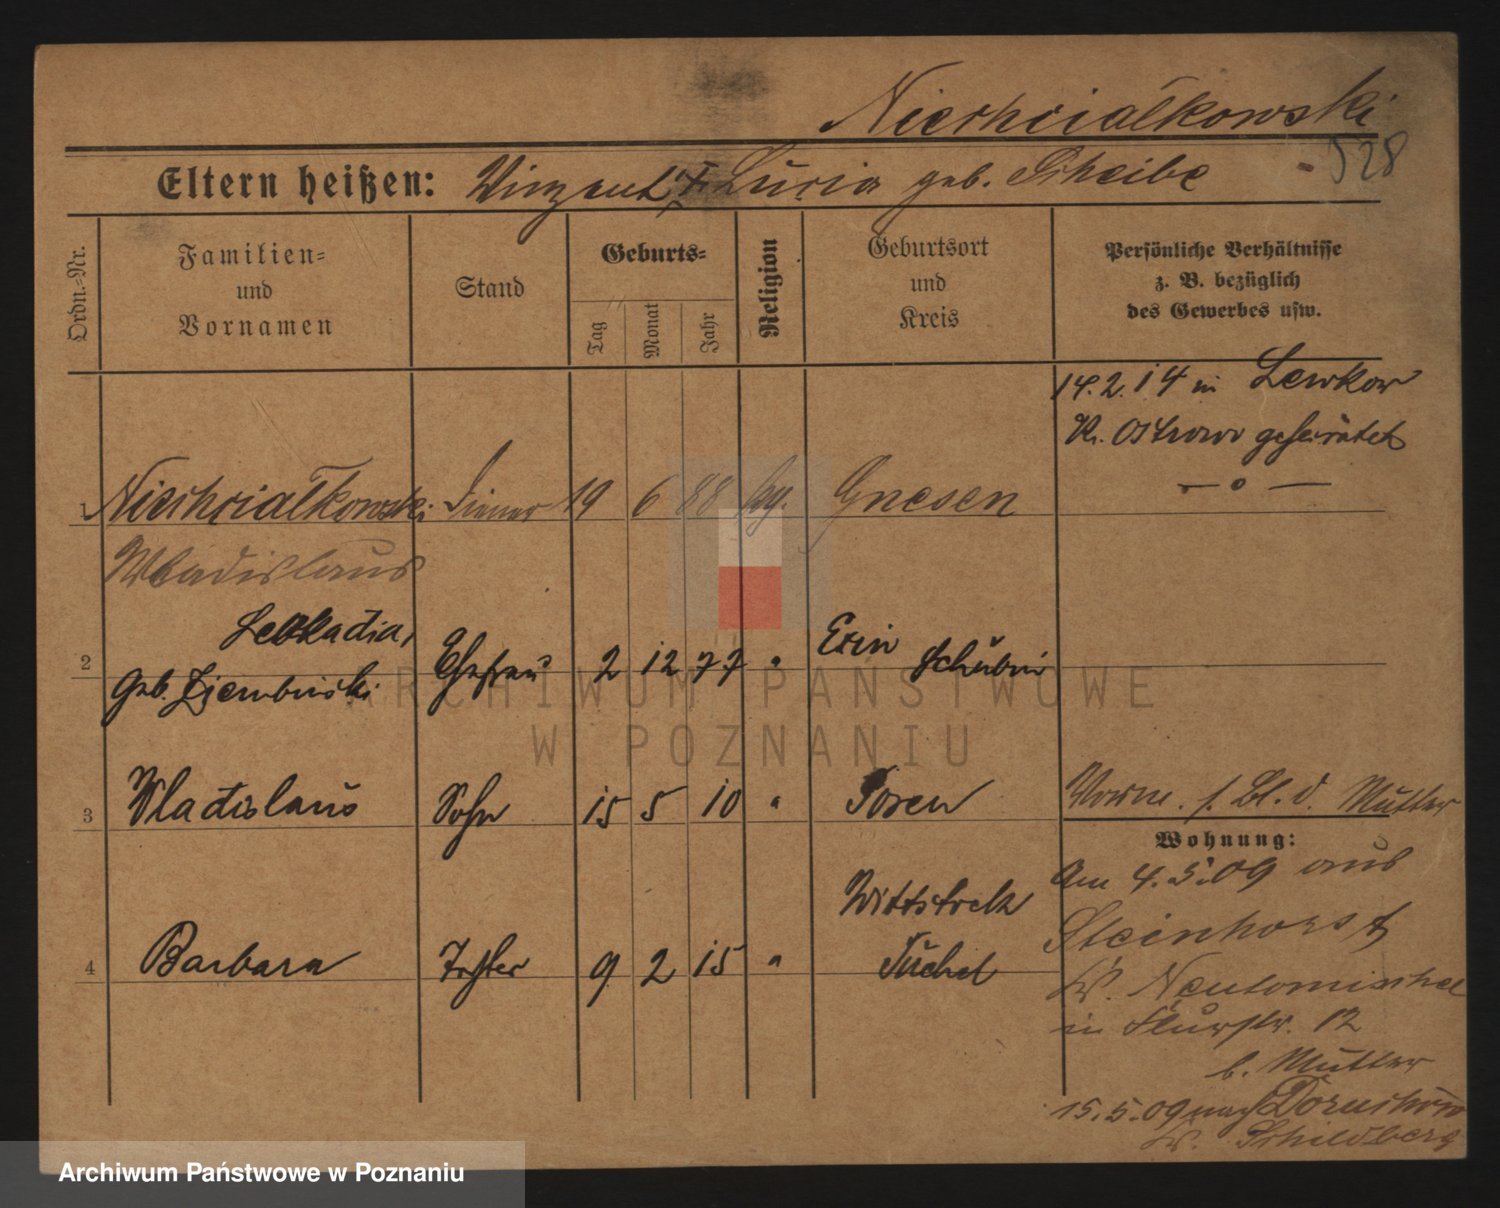 Niechciałkowski
528
Eltern heißen: Vinzent † Lucia geb. Scheibe
Ordn.-Nr.
Familien-
und
Vornamen
Stand
Geburts-
Tag
Monat
Jahr
Religion
Geburtsort
und
Kreis
Persönliche Verhältnisse
z. B. bezüglich
des Gewerbes usw.
14.2.14 in Lewkow
Kr. Ostrowo geheiratet
— o —
1 Niechciałkowski Diener 19 6 88 kg. Gnesen
Wladislaus
2 Leokadia, Ehefrau 2 12 77 " Exin Schubin
geb. Ziembinski
3 Wladislaus Sohn 15 5 10 " Posen
Vorm. s. Bl. d. Mutter
Wohnung:
Am 4.5.09 aus
Steinhorst
Kr. Neutomischel
in Flurstr. 12
b. Mutter
15.5.09 nach
Kr. Schildberg
4 Barbara Tochter 9 2 15 " Wittstock
Tuchel
ARCHIWUM PAŃSTWOWE
W POZNANIU
Archiwum Państwowe w Poznaniu